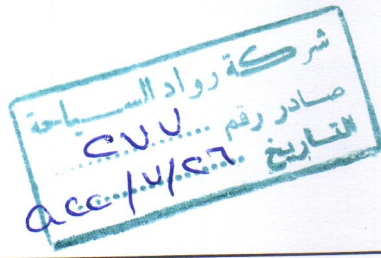 شركة رواد السياحة
صادر رقم ٢٧٧
التاريخ ٢٦/٧/